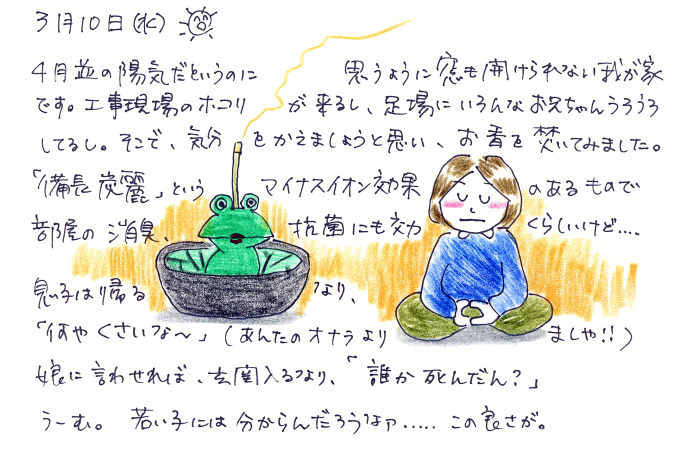 3月10日(水)
4月並の陽気だというのに 思うように窓も開けられない我が家
です。工事現場のホコリ が来るし、足場にいろんなお兄ちゃんうろうろ
してるし。そこで、気分 をかえましょうと思い、お香を焚いてみました。
「備長炭麗」という マイナスイオン効果 のあるもので
部屋の消臭、 抗菌にも効 くらしいけど‥‥
息子は帰る なり、
「何や くさいな〜」(あんたのオナラより ましや!!)
娘に言わせれば、玄関入るなり、「誰か死んだん?」
うーむ。 若い子には分からんだろうなァ‥‥‥この良さが。